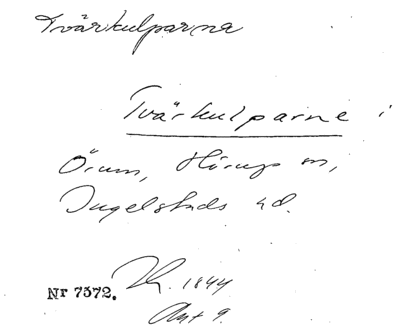 Tvärkulparna
Tvärkulparne i
Örum, Hörup m,
Ingelstads hd.
Nr 7572. 1844
Akt 9.